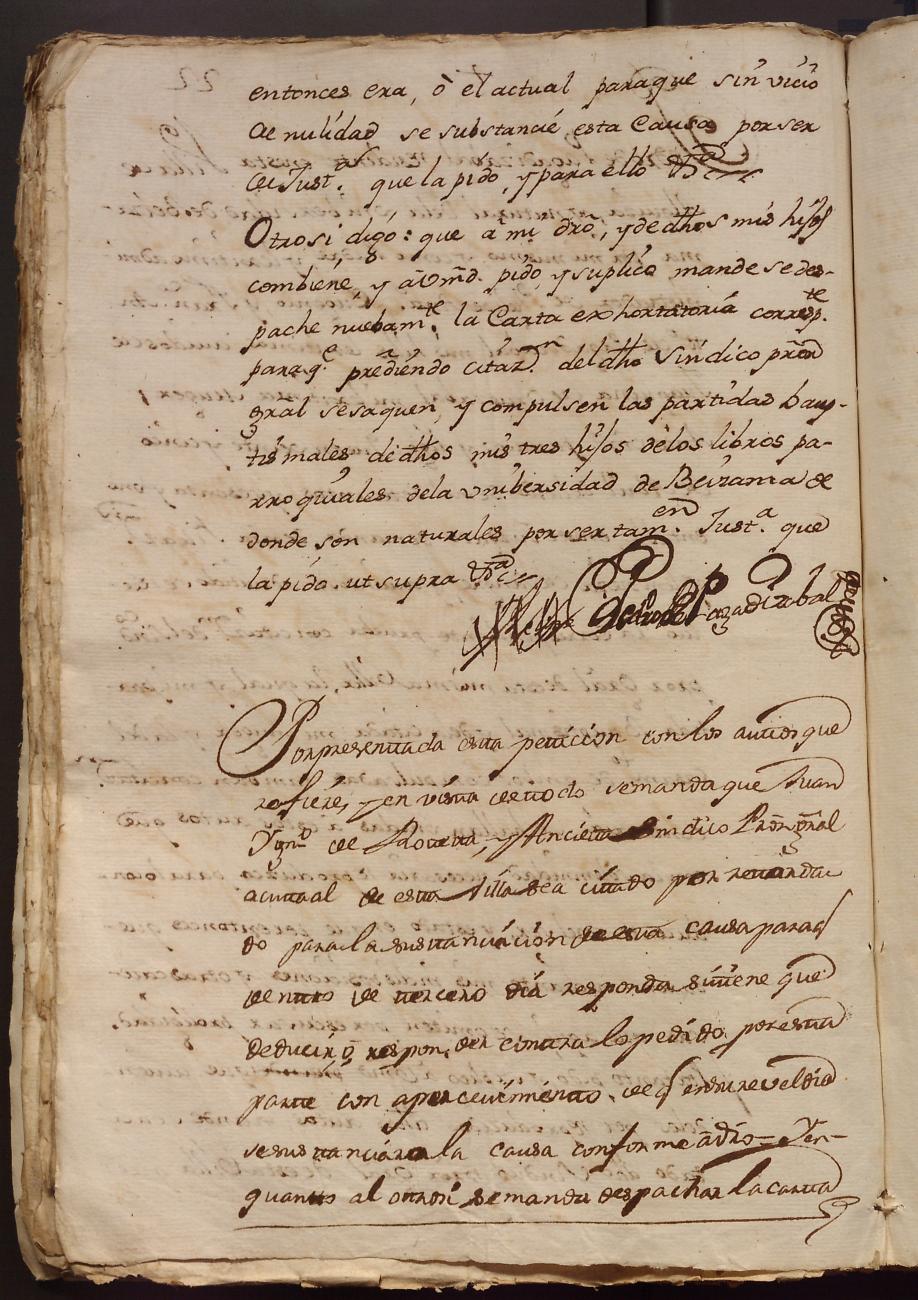 entonces era, ò el actual paraque sin vicio
de nulidad se substancie esta Causa por ser
de Just.ª que la pido, y para ello &ª
Otrosi digo: que à mi dro, y de dhos mis hijos
combiene, y a Vmd. pido, y suplico mande se des-
pache nuebam.te la Carta exhortatoria corresp.te
para q.e prediendo citaz.n del dho Sindico prõr
gral se saquen, y compulsen las partidas bau-
tismales de dhos mis tres hijos de los libros pa-
rroquiales dela Vnibersidad de Beizama de
donde son naturales por ser tam.en Just.ª que
la pido ut supra &ª
Pedro de Lazadizabal
Por presentada esta petticion con los auttos que
refiere, y en vista de ttodo se manda que Juan
Ygn.o de Rotetta, y Anchieta Sindico Prõr gral
acttual de esta Villa sea cittado
do para la susttanciación de esta causa paraq
denttro de ttercero dia responda si ttiene que
deducir, ò responder conttra lo pedido por esta
partte con apercevimientto de q en su reveldia
se susttanciará la causa conforme à dro= Y en
quantto al ottrosi se manda despachar la cartta